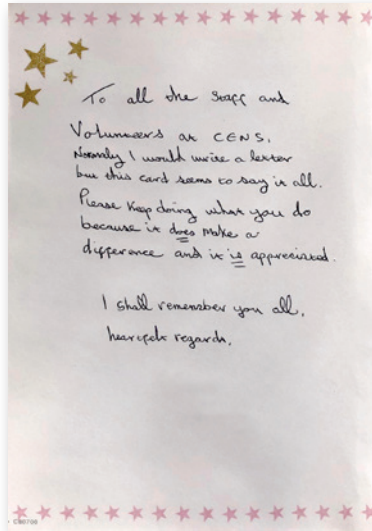 To all the staff and
Volunteers at CENS.
Normally I would write a letter
but this card seems to say it all.
Please keep doing what you do
because it does make a
difference and it is appreciated.
I shall remember you all,
heartfelt regards,